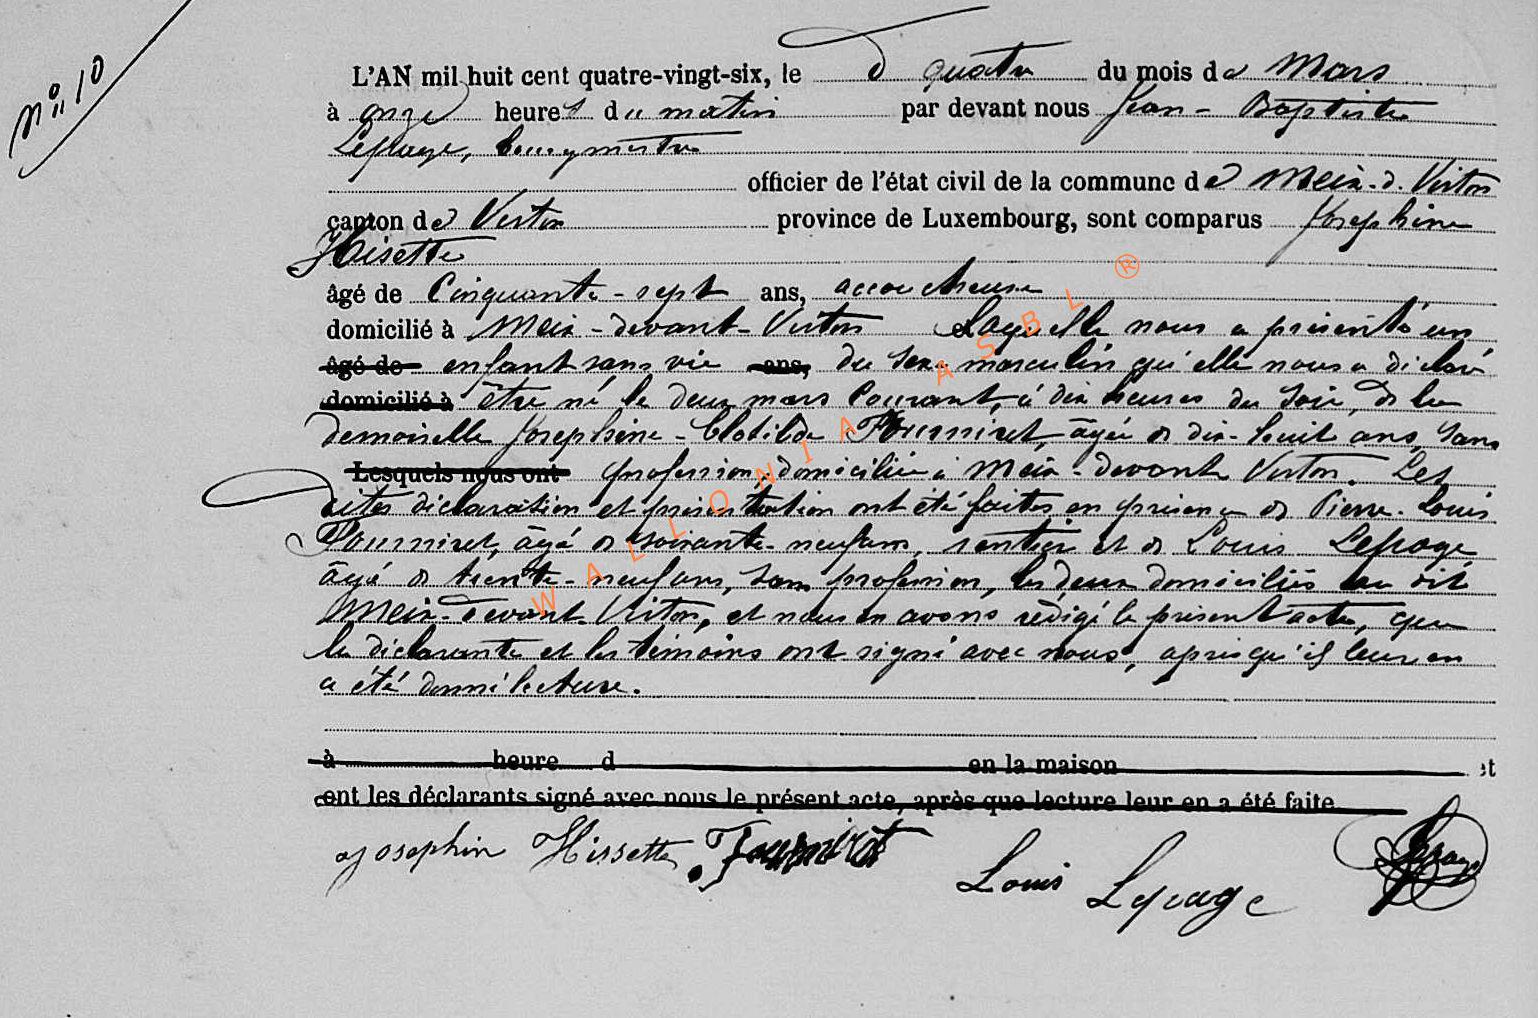 N° 10
L'AN mil huit cent quatre-vingt-six, le quatre du mois de Mars
à onze heures du matin par devant nous Jean-Baptiste
Lepage, bourgmestre
officier de l'état civil de la commune de Meix-d. Virton
canton de Virton province de Luxembourg, sont comparus Josephine
Hisette
âgé de Cinquante-sept ans, accoucheuse
domicilié à Meix-devant-Virton Laquelle nous a présenté un
âgé de enfant sans vie ans, du sexe masculin qu'elle nous a déclaré
domicilié à être né le deux mars courant, à dix heures du soir, de la
demoiselle Josephine-Clotilde Fourniret, âgée de dix-huit ans, sans
Lesquels nous ont profession, domiciliée à Meix-devant Virton. Les
dites déclaration et présentation ont été faites en présence de Pierre-Louis
Fourniret, âgé de soixante-neuf ans, rentier et de Louis Lepage
âgé de trente-neuf ans, sans profession, les deux domiciliés au dit
Meix-devant-Virton, et nous en avons rédigé le présent acte, que
la déclarante et les témoins ont signé avec nous, après qu'il leur en
a été donné lecture.
à heure d en la maison et
ont les déclarants signé avec nous le présent acte, après que lecture leur en a été faite
Josephin Hissette Fourniret
Louis Lepage
Lepage
WALLONIA ASBL ®